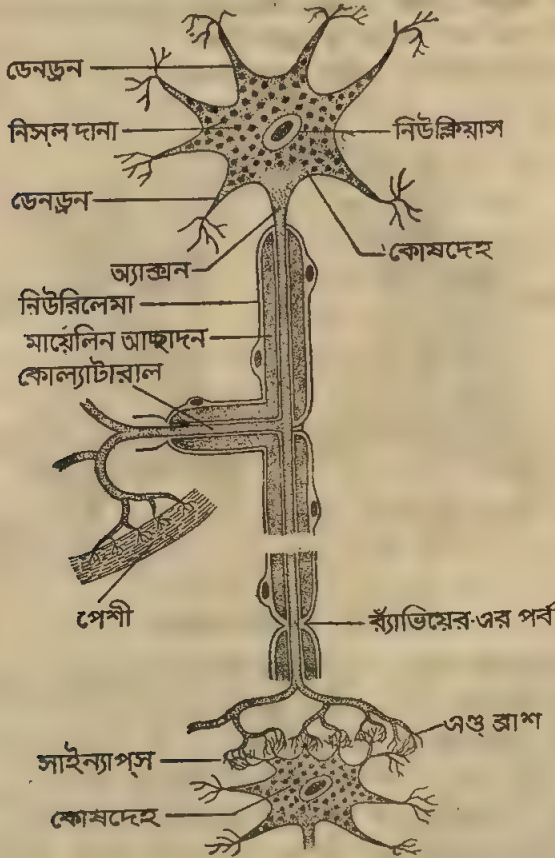 ডেনড্রন
নিস্‌ল দানা
নিউক্লিয়াস
ডেনড্রন
কোষদেহ
অ্যাক্সন
নিউরিলেমা
মায়েলিন আচ্ছাদন
কোল্যাটারাল
পেশী
র‍্যাঁভিয়ের-এর পর্ব
এণ্ড্ ব্রাশ
সাইন্যাপ্‌স
কোষদেহ